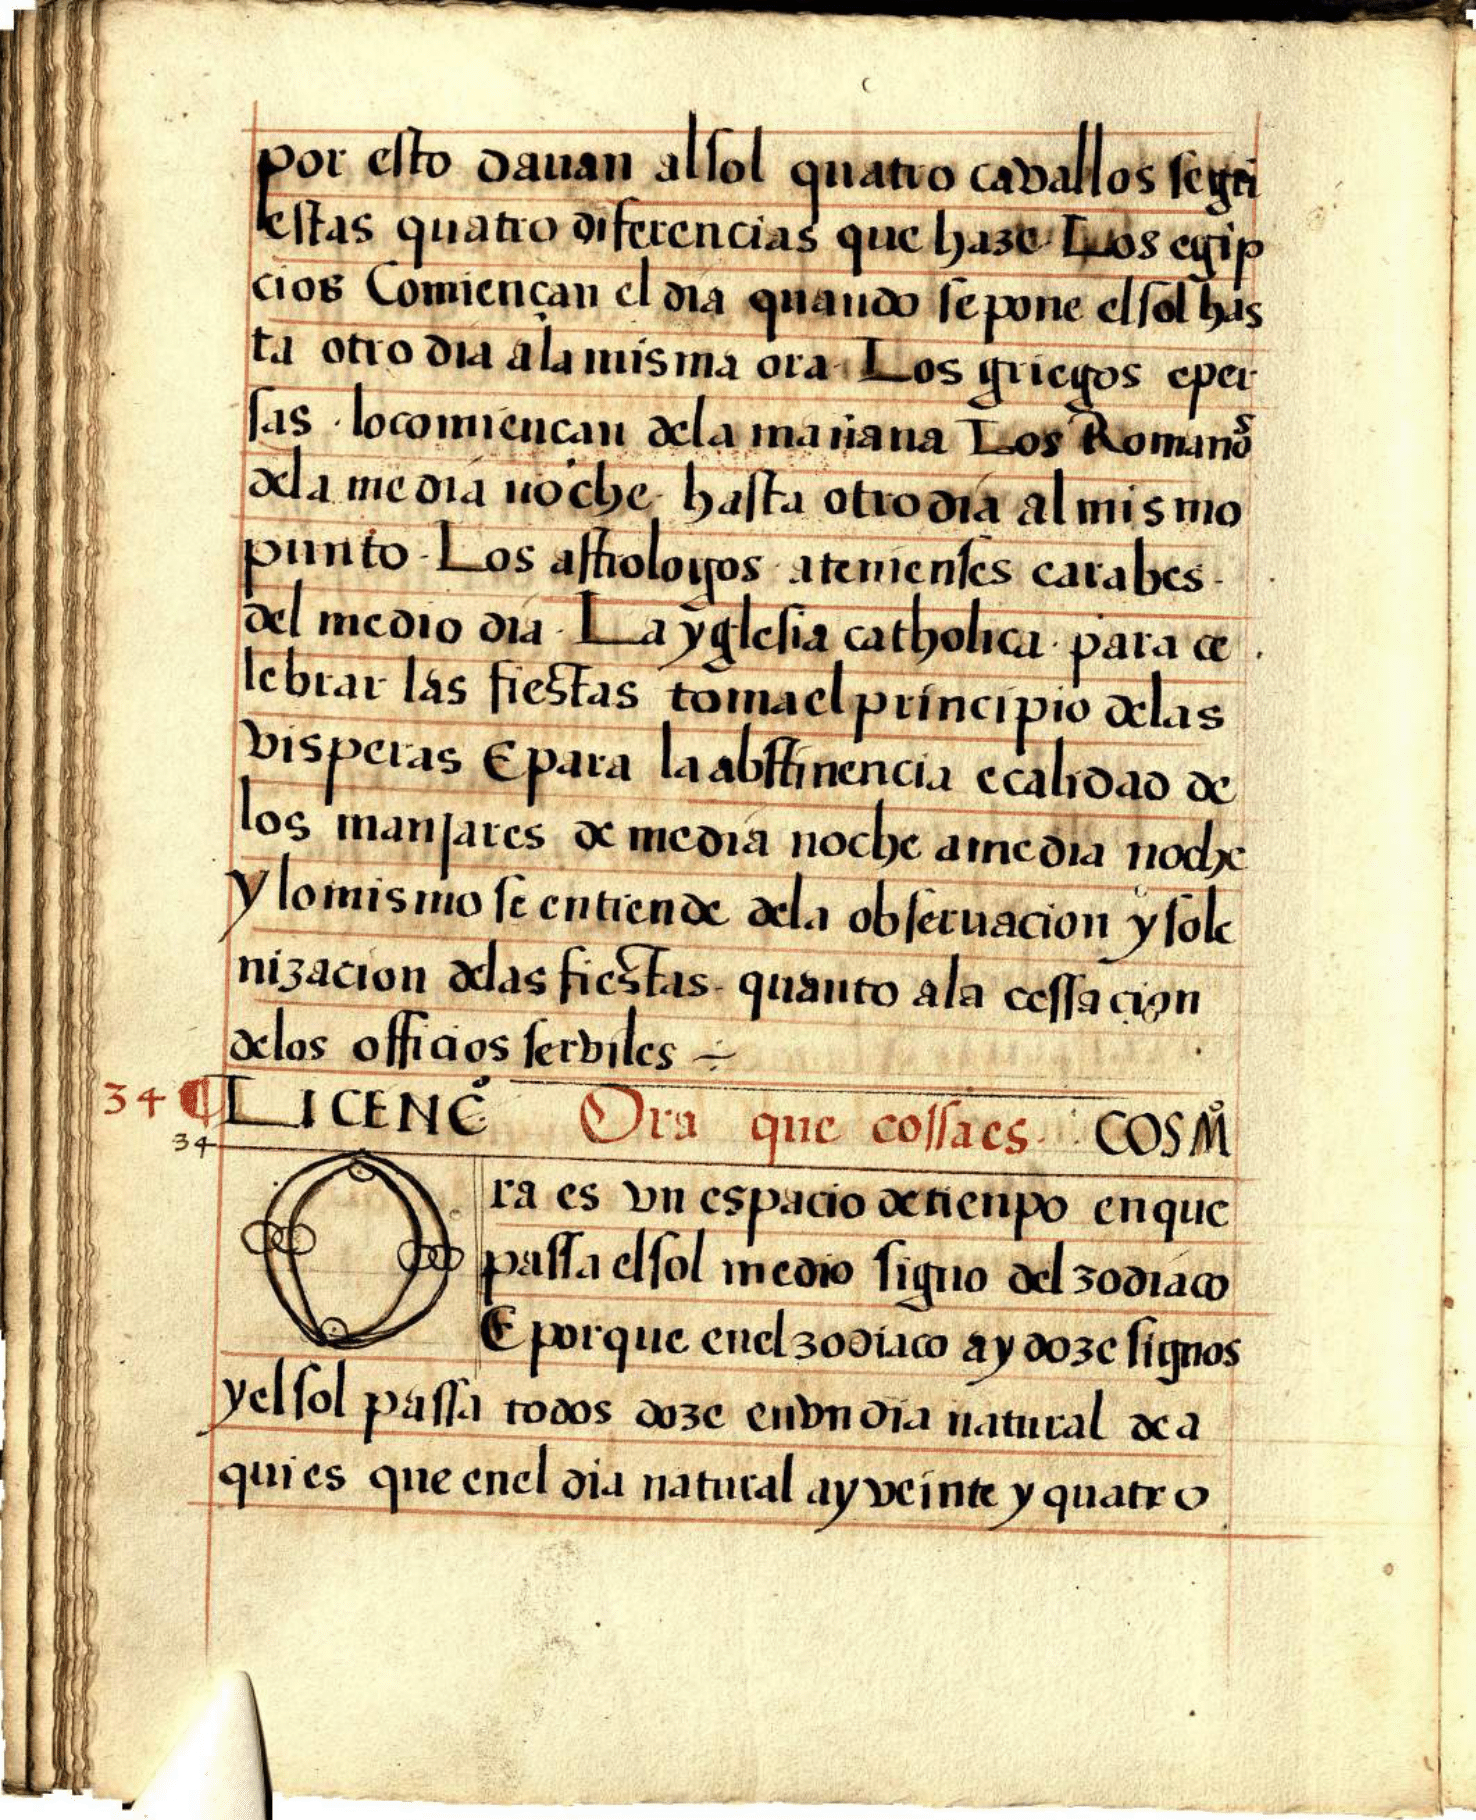 por esto dauan alsol quatro cavallos segũ
estas quatro diferencias que haze Los egip
cios Comiençan el dia quando sepone elsol has
ta otro dia alamisma ora Los griegos eper
sas · locomiençan dela mañana Los Romanoˢ
dela media noche hasta otrodia al mismo
punto - Los astrologos atenienses earabes -
del medio dia · La yglesia catholica · para ce
lebrar las fiestas toma el principio delas
visperas E para la abstinencia e calidad de
los manjares de media noche amedia noche
y lo mismo se entiende dela obseruacion y sole
nizacion delas fiestas - quanto ala cessacion
delos officios serviles ÷
34 ¶ LICENCº Ora que cossaes COSMº
34
Ora es vn espacio detienpo enque
passa elsol medio signo del zodiaco
E porque enel zodiaco ay doze signos
y elsol passa todos doze envn dia natural de a
qui es que enel dia natural ay veinte y quatro